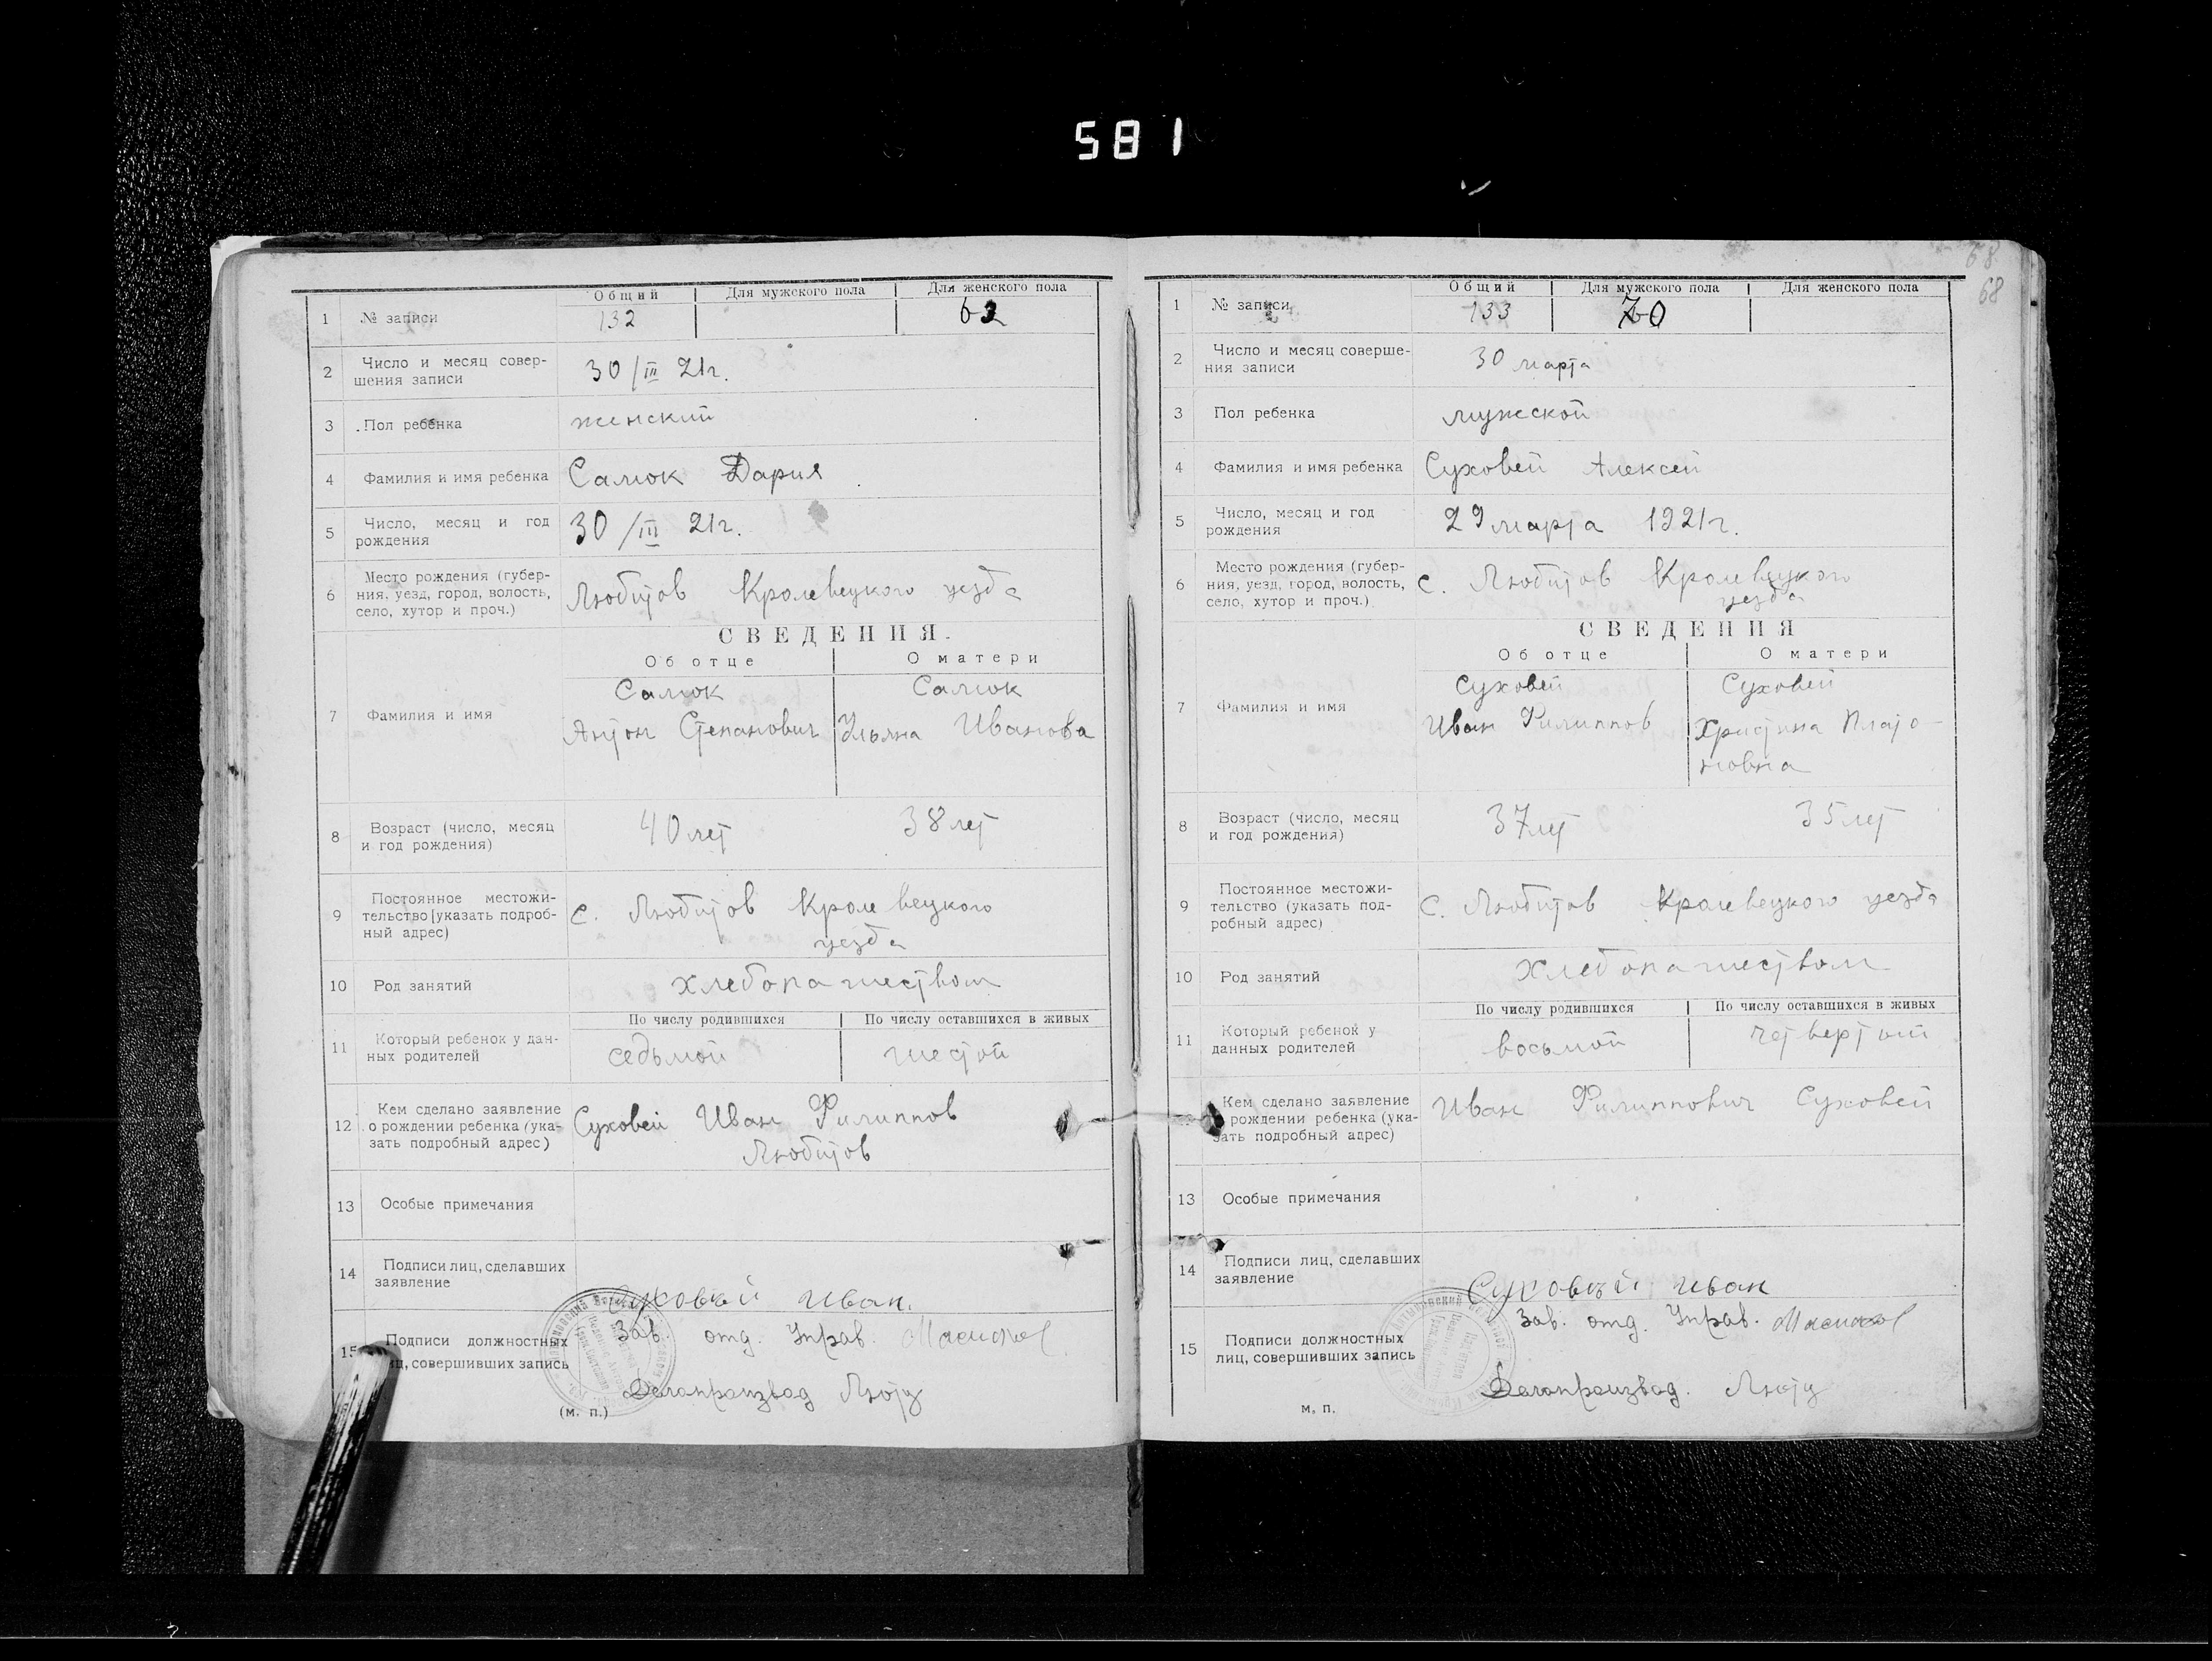 581
68
68
Общий Для мужского пола Для женского пола
1 № записи 132 62
2 Число и месяц совер-
шения записи 30/III 21г.
3 Пол ребенка женский
4 Фамилия и имя ребенка Самок Дария
5 Число, месяц и год
рождения 30/III 21г.
6 Место рождения (губер-
ния, уезд, город, волость,
село, хутор и проч.) Любитов Кролевецкого уезда
СВЕДЕНИЯ.
Об отце О матери
7 Фамилия и имя
Самок Самок
Антон Степанович Ульяна Иванова
8 Возраст (число, месяц
и год рождения) 40 лет 38 лет
9 Постоянное местожи-
тельство [указать подроб-
ный адрес) с. Любитов Кролевецкого
уезда
10 Род занятий хлебопашеством
По числу родившихся По числу оставшихся в живых
11 Который ребенок у дан-
ных родителей седьмой шестой
12 Кем сделано заявление
о рождении ребенка (ука-
зать подробный адрес) Суховей Иван Филиппов
Любитов
13 Особые примечания
14 Подписи лиц, сделавших
заявление Суховей Иван.
15 Подписи должностных
лиц, совершивших запись
Зав. отд. Управ.
Делопроизвод
(м. п.)
Общий Для мужского пола Для женского пола
1 № записи 133 70
2 Число и месяц соверше-
ния записи 30 марта
3 Пол ребенка мужской
4 Фамилия и имя ребенка Суховей Алексей
5 Число, месяц и год
рождения 29 марта 1921г.
6 Место рождения (губер-
ния, уезд, город, волость,
село, хутор и проч.) с. Любитов Кролевецкого
уезда
СВЕДЕНИЯ
Об отце О матери
7 Фамилия и имя
Суховей Суховей
Иван Филиппов Христина Плато-
новна
8 Возраст (число, месяц
и год рождения) 37 лет 35 лет
9 Постоянное местожи-
тельство (указать под-
робный адрес) с. Любитов Кролевецкого уезда
10 Род занятий хлебопашеством
По числу родившихся По числу оставшихся в живых
11 Который ребенок у
данных родителей восьмой четвертый
Кем сделано заявление
рождении ребенка (ука-
зать подробный адрес) Иван Филиппович Суховей
13 Особые примечания
14 Подписи лиц, сделавших
заявление Суховей Иван
15 Подписи должностных
лиц, совершивших запись
Зав. отд. Управ.
Делопроизвод.
м. п.